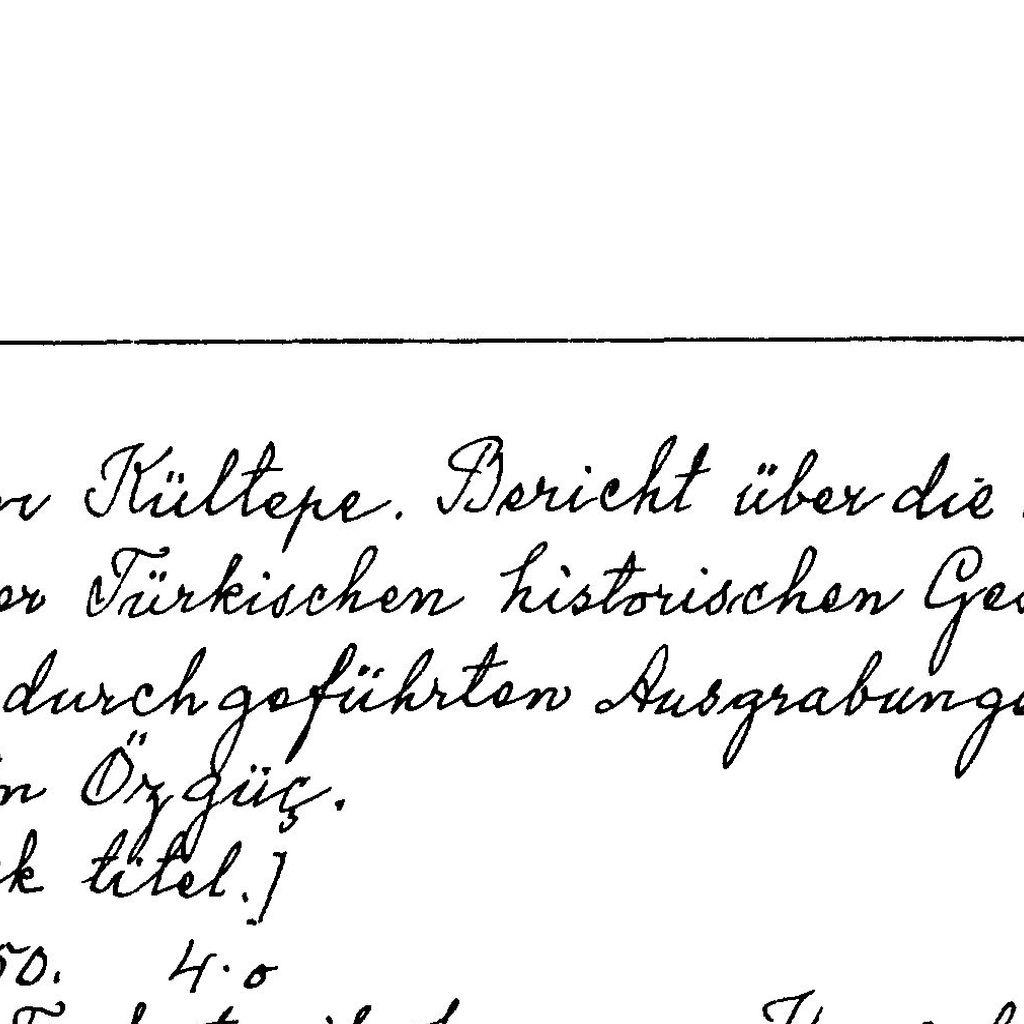 Kültepe. Bericht über die
er Türkischen historischen Ges
durchgeführten Ausgrabunge
in Özgüç.
sk titel.]
50. 4:o